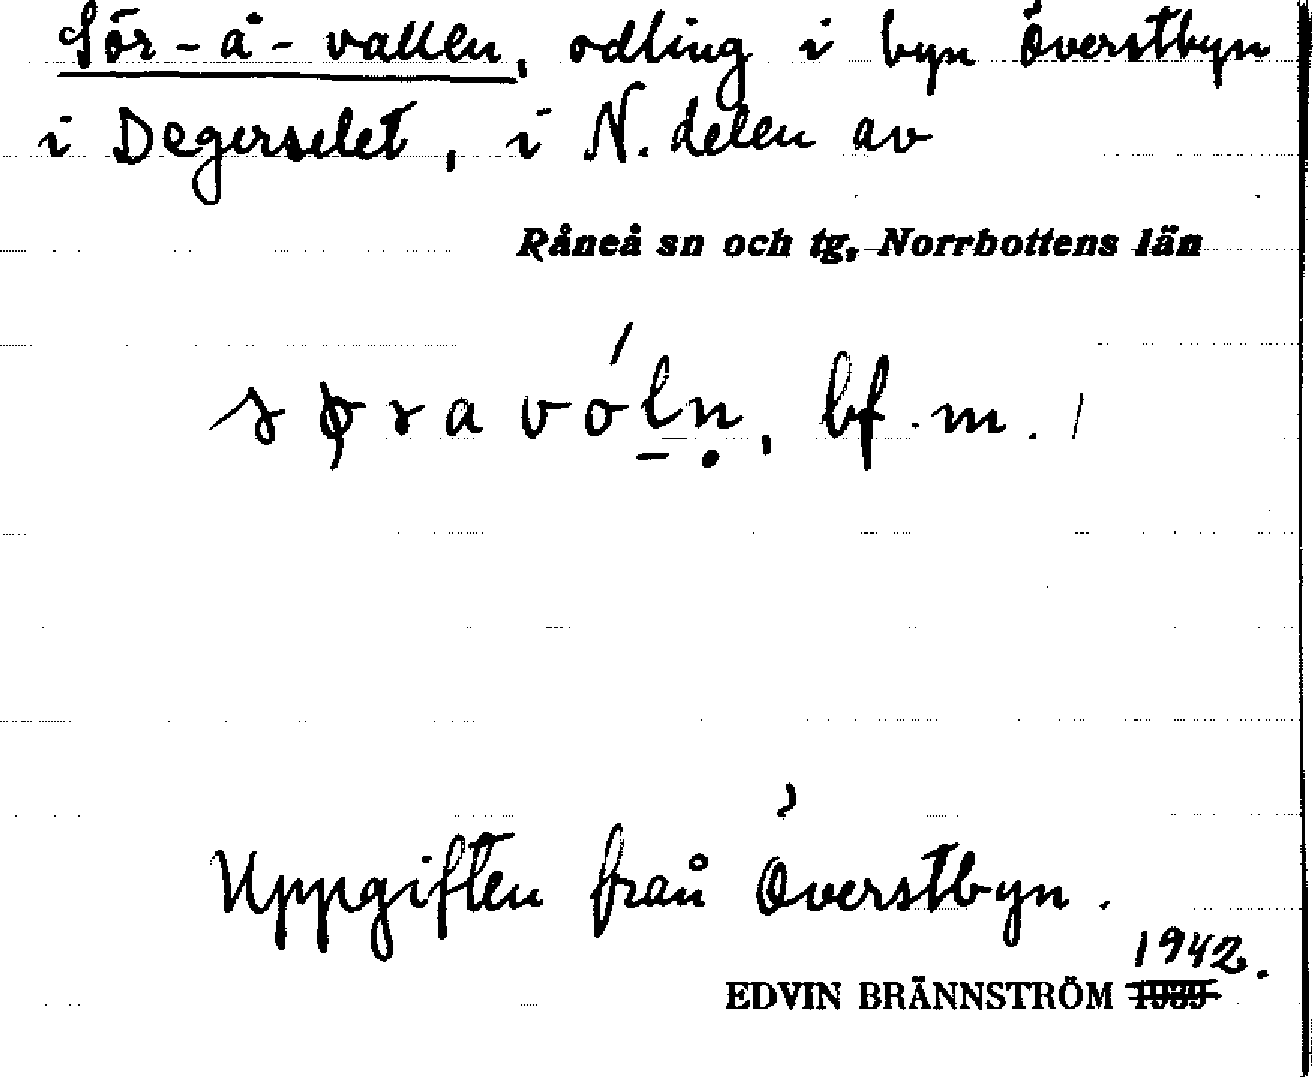 Sör-å-vallen, odling i byn Överstbyn
i Degerselet, i N. delen av
Råneå sn och tg, Norrbottens län
bf. m.
Uppgiften från Överstbyn.
1942.
EDVIN BRÄNNSTRÖM 1939